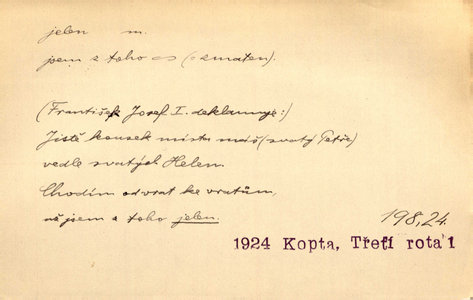 jelen m.
jsem z toho cs (: zmaten).
(František Josef I. deklamuje:)
Jistě kousek místa máš (svatý Petře)
vedle svatých Helen.
Chodím od vrat ke vratům,
už jsem z toho jelen.
198,24.
1924 Kopta, Třetí rota 1